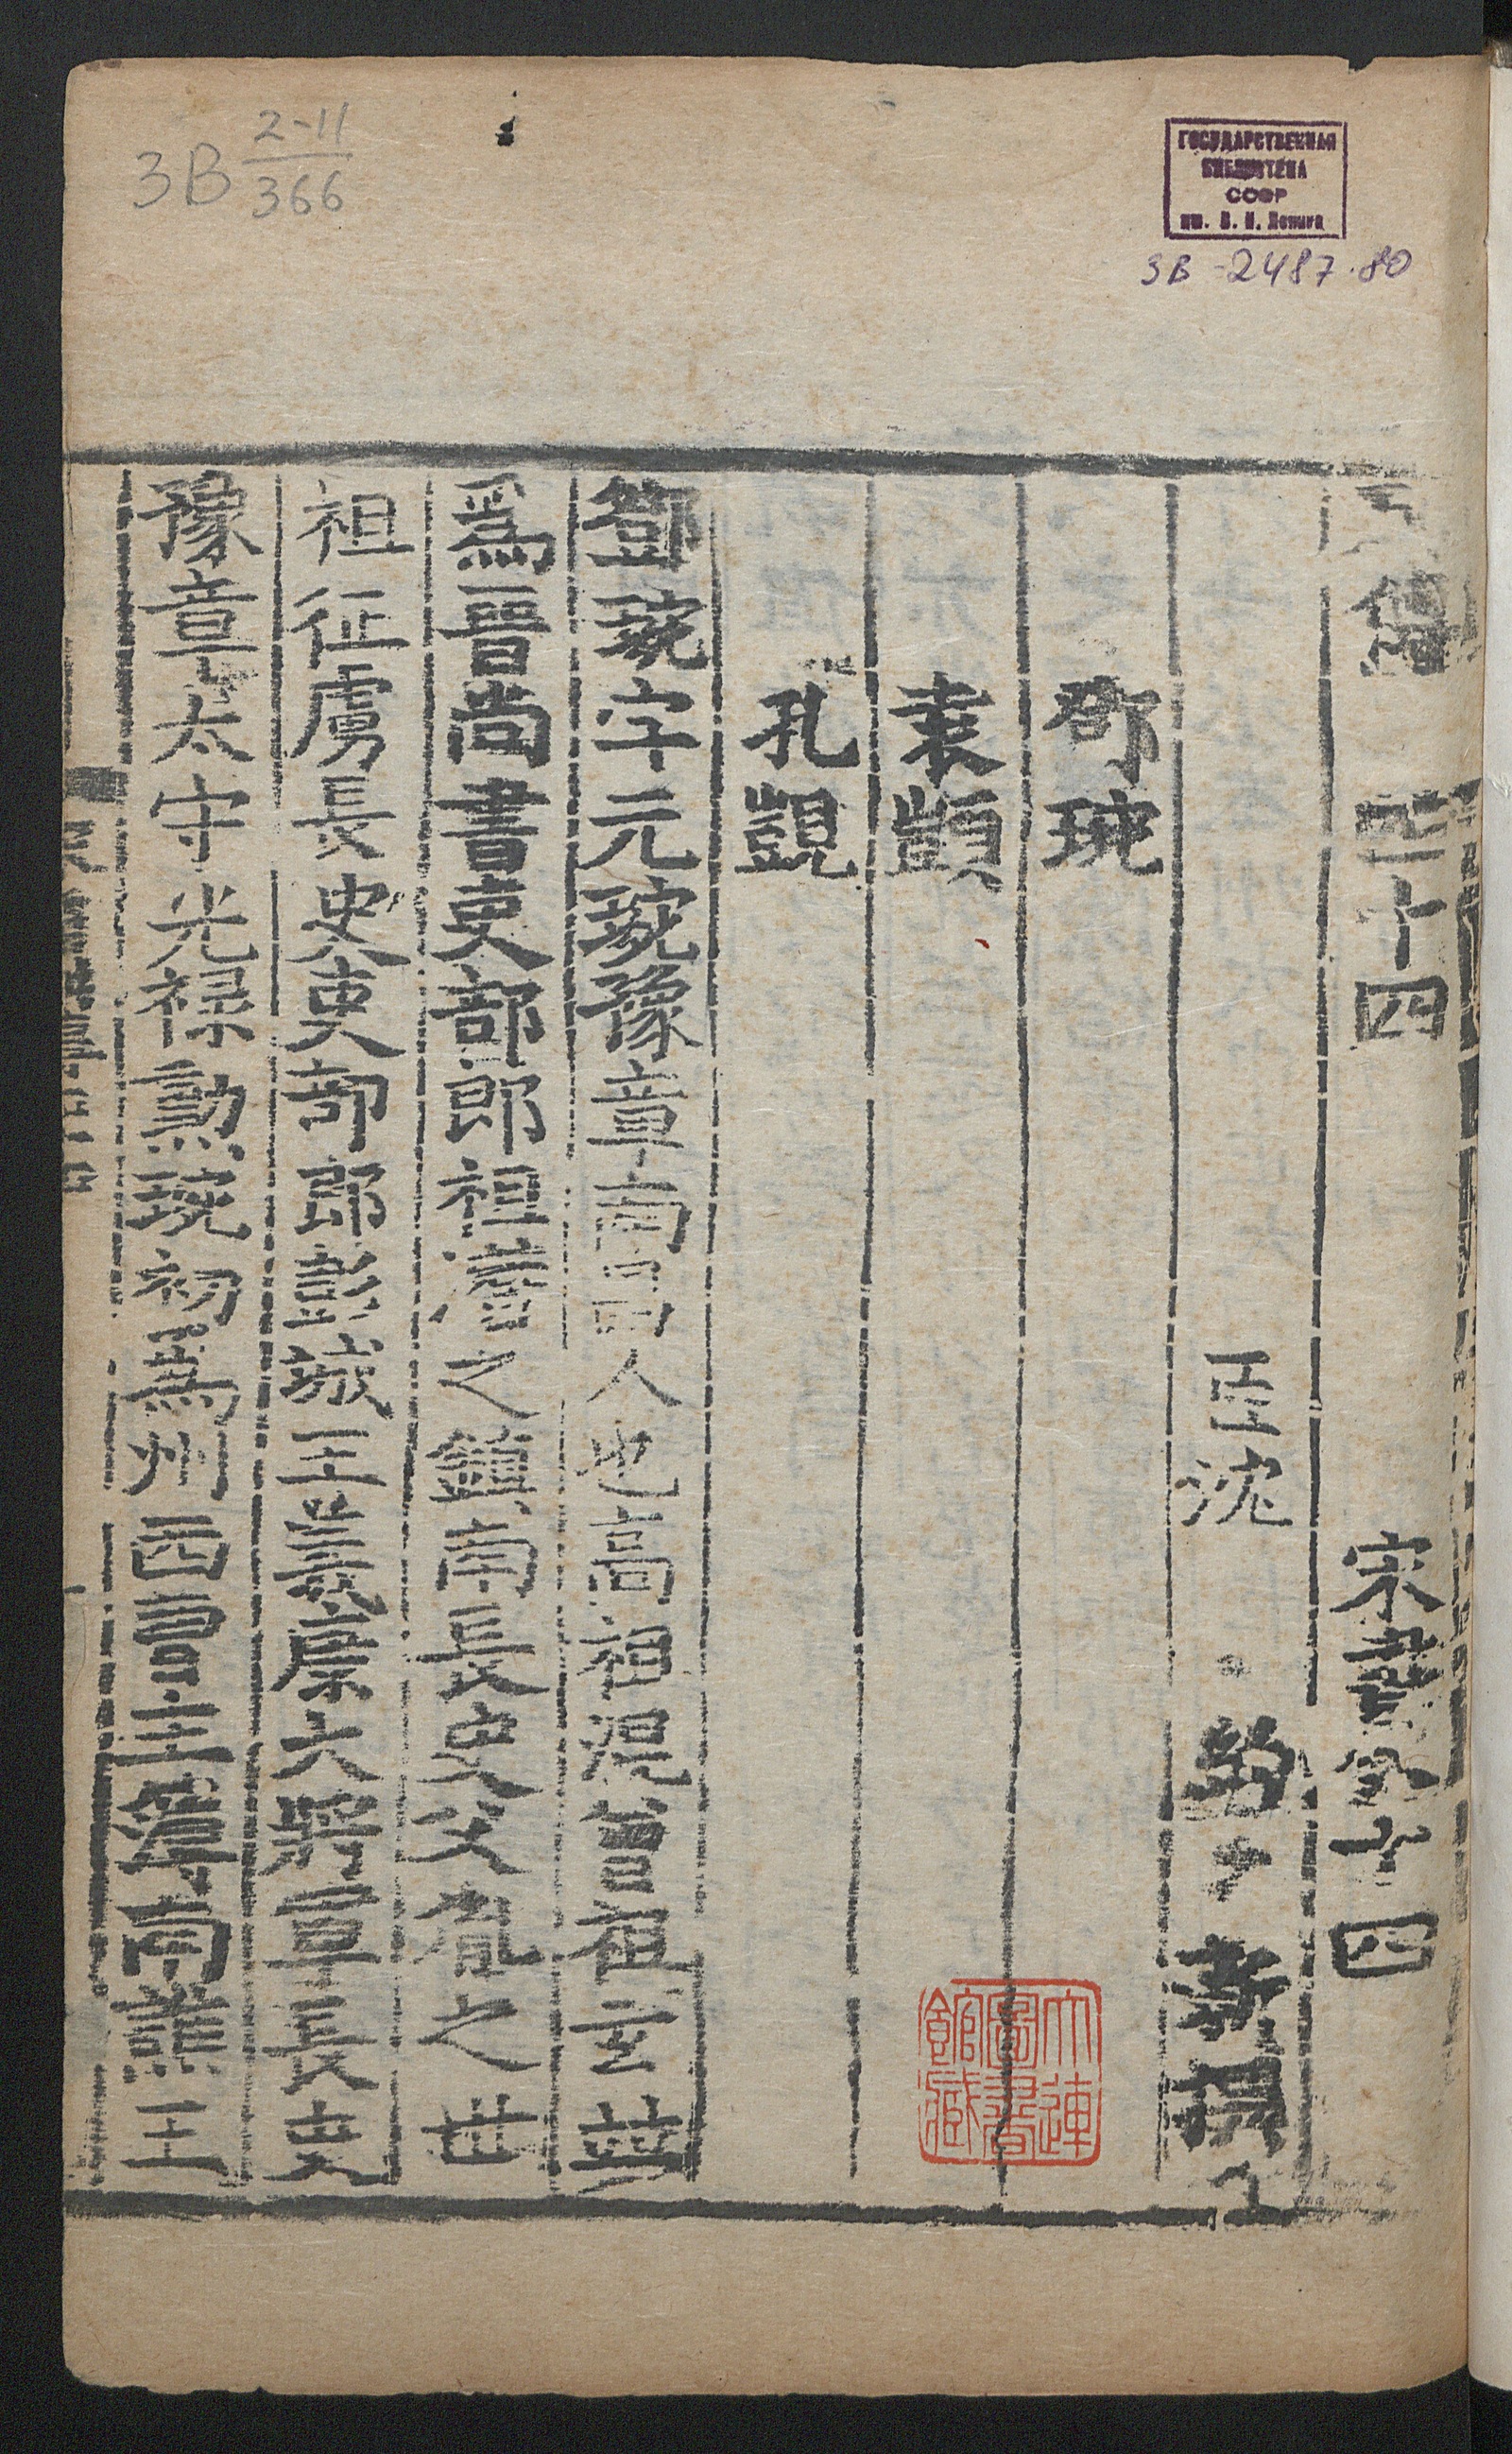 3В 2-11/366
ГОСУДАРСТВЕННАЯ
БИБЛИОТЕКА
СССР
им. В. И. Ленина
3В-2487.80
列傳 四十四 宋書八十四
臣沈 約 新撰
鄧琬
袁顗
孔覬
鄧琬字元琬豫章南昌人也高祖混曾祖玄並
爲晉尚書吏部郎祖潛之鎮南長史父胤之世
祖征虜長史吏部郎彭城王義康大將軍長史
豫章太守光禄勲琬初爲州西曹主簿南譙王
大連圖書館藏